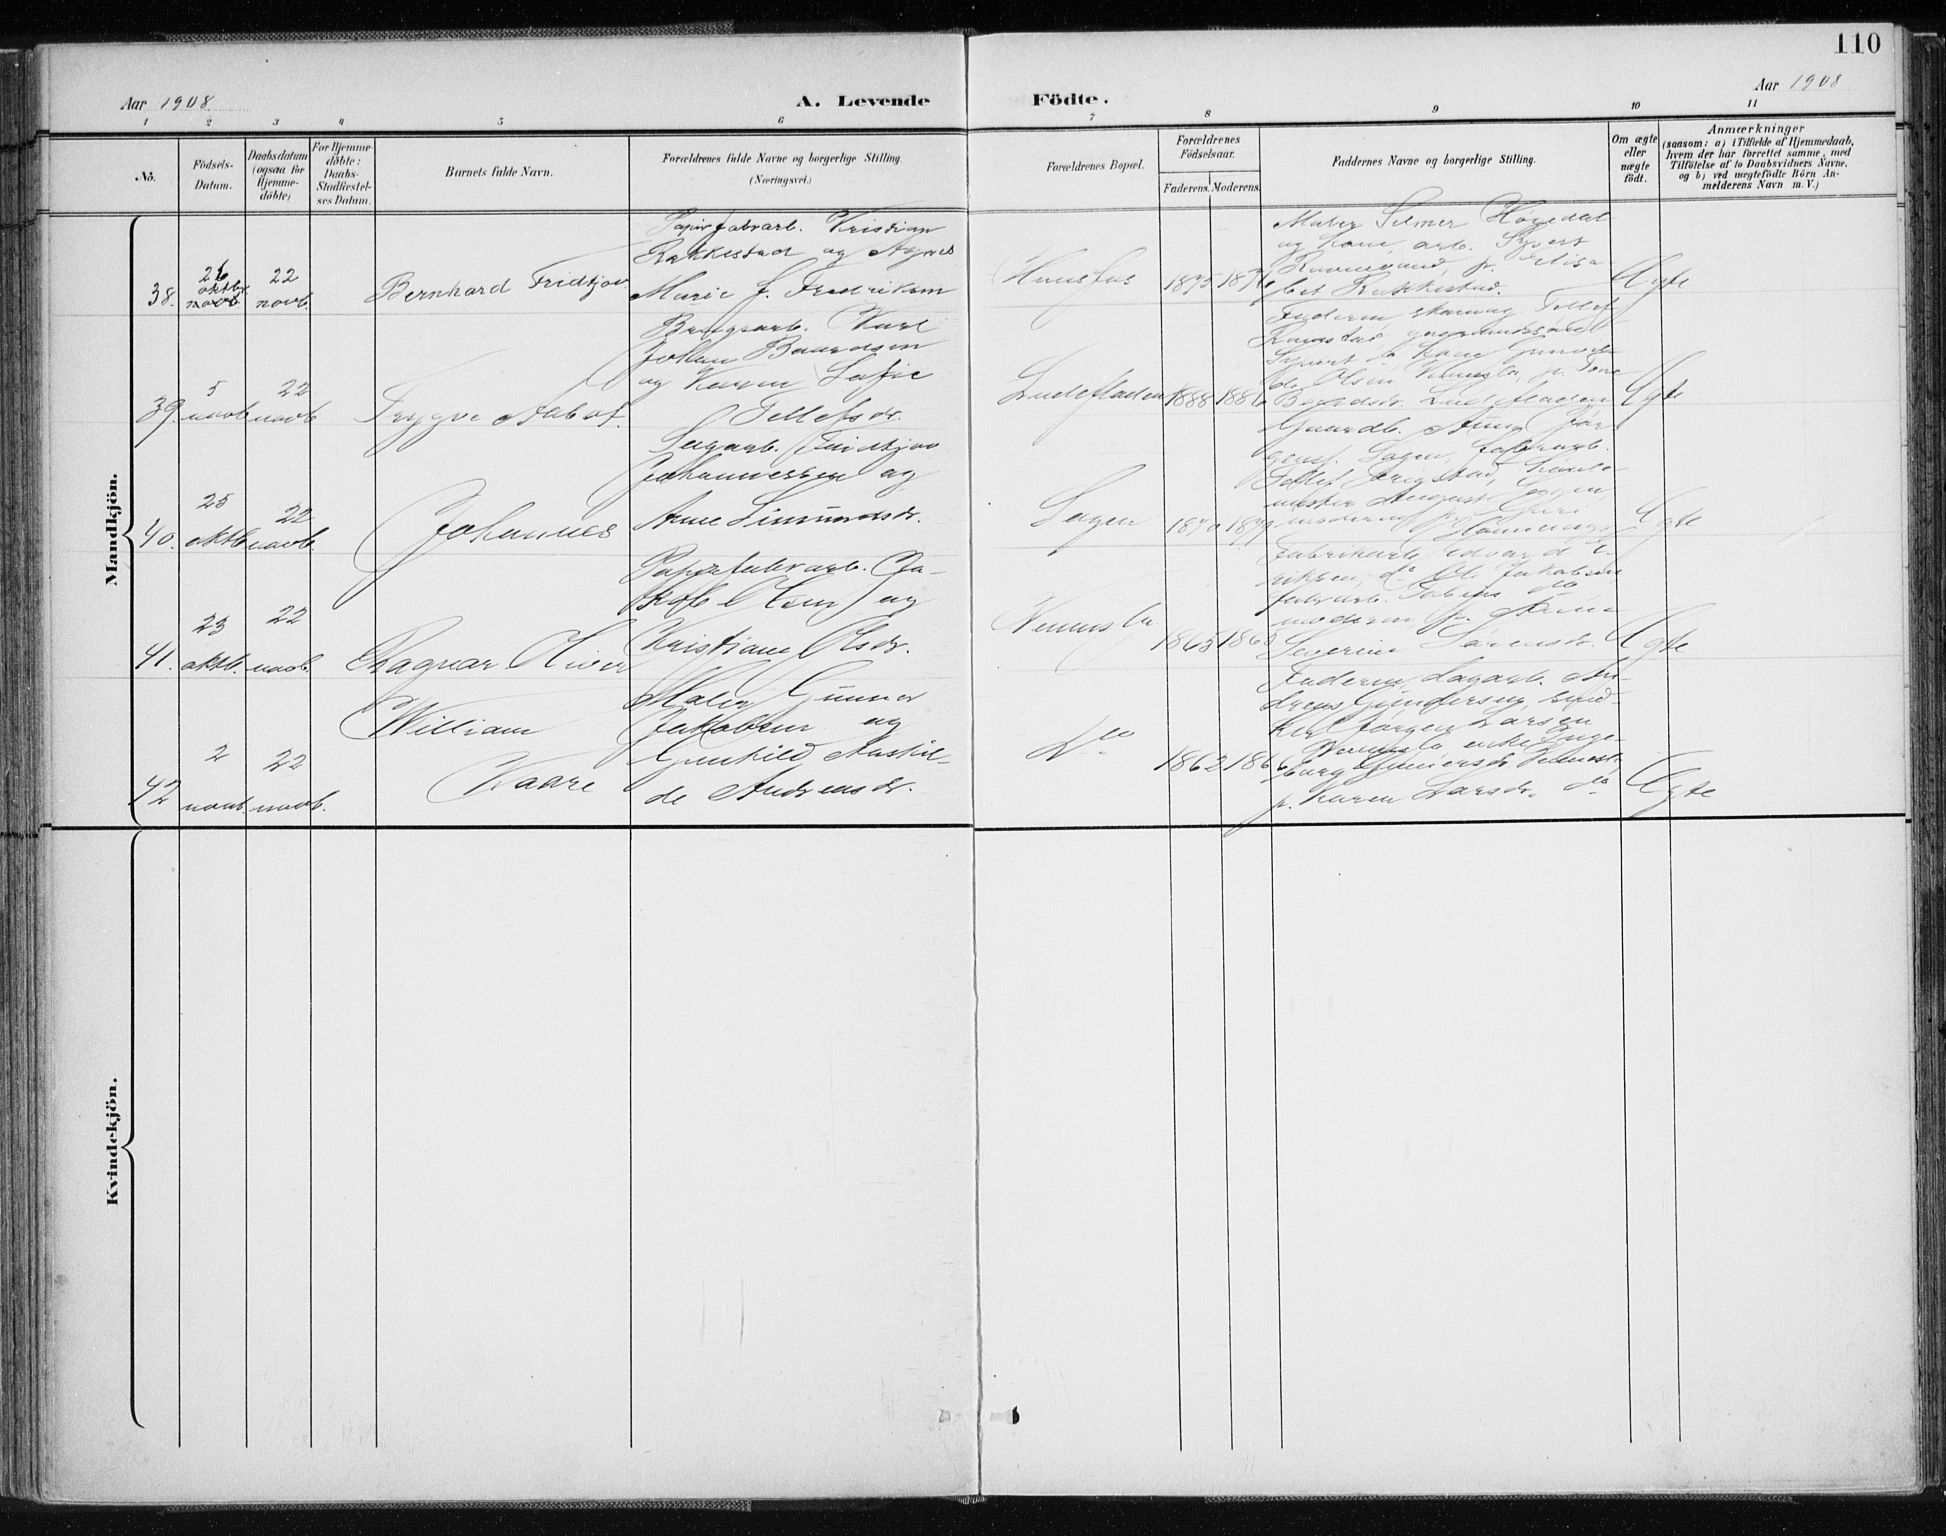 110
Aar 1908
A. Levende Födte.
Aar 1908
1 2 3 4 5 6 7 8 9 10 11
No.
Födsels-Datum.
Daabsdatum (ogsaa for Hjemme-döbte)
For Hjemme-döbte: Daabs-Stadfæstel-ses Datum.
Barnets fulde Navn.
Forældrenes fulde Navne og borgerlige Stilling.
(Næringsvei.)
Forældrenes Bopæl.
Forældrenes Födselsaar.
Faderens. Moderens.
Faddernes Navne og borgerlige Stilling.
Om ægte eller uægte födt.
Anmærkninger
(saasom: a) i Tilfælde af Hjemmedaab,
hvem der har forrettet samme, med
Tilföielse af to Daabsvidners Navne,
og b) ved uægtefödte Börn An-
melderens Navn m. V.)
Mandkjön.
38.
26 oktb novb
22 novb.
Bernhard Fridtjov
Papirfabrarb. Kristian
Rakkestad og Agnes
Marie f. Fredriksen
Hunsfos
1875 1876
Maler Selmer Høyedal
og Kone, arb. Syvert
Ravnevand, p. Elisa-
bet Rakkestad.
Ægte
39.
5 novb
22 novb
Trygve Adolf.
Brugsarb. Karl
Johan Baardsen
og Karen Sofie
Tellefsdr.
1888 1886
Faderen,
Kone
Olsen Vennesla, p. Tone
Baardsdr.
Ægte
40.
25 oktb
22 novb.
Johannes
Sagarb. Fridtjov
Johannessen og
Anne Simundsdr.
Sagen
1870 1879
Gaardb.
Sagen, Fabrarb.
Tellef
August
moderen, p.
Ægte
41.
23 oktb.
22 novb.
Ragnar Oliver
Papirfabrarb. Ja-
kob Olsen og
Kristiane Olsdr.
Vennesla
1865 1868
Fabrikarb. Edvard E-
riksen, do Ol. Jakobsen
fabrarb. Tobias do
moderen, p. Anna
Severine Sørensdr.
Ægte
42
2 novb.
22 novb.
William
Kaare
Maler Gunnar
Jakobsen og
Gunhild Aashil-
de Andreasdr.
Do
1862 1866
Faderen, Sagarb. An-
dreas Gundersen, smed
Karl Jørgen Larsen
Vennesla, enke Inge-
borg Gundersdr Vennesla
p. Karen Larsdr. do
Ægte
Kvindekjön.